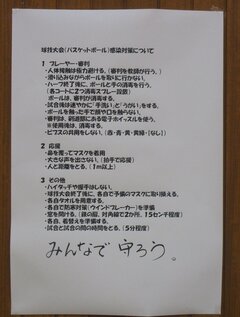 球技大会(バスケットボール)感染対策について
1 プレーヤー・審判
・人体接触は極力避ける。(審判を教師が行う。)
・滑り込みながらボールを取りに行かない。
・ハーフ終了後に、ボールと手の消毒を行う。
(各コートに2つ消毒スプレー設置)
ボールは、審判が消毒する。
・試合後は速やかに「手洗い」と「うがい」をする。
・ボールを触った手で顔や口を触らない。
・審判は、前述部にある電子ホイッスルを使う。
※使用後は、消毒する。
・ビブスの共用をしない。(赤・青・黄・黄緑・[なし])
2 応援
・鼻を覆ってマスクを着用
・大きな声を出さない。(拍手で応援)
・人と距離をとる。(1m以上)
3 その他
・ハイタッチや握手はしない。
・球技大会終了後に、各自で予備のマスクに取り換える。
・各自タオルを用意する。
・各自で防寒対策(ウインドブレーカー)を準備
・窓を開ける。(緑の扉、対角線で2か所、15センチ程度)
・各自、着替えを準備する。
・試合と試合の間の時間をとる。(5分程度)
みんなで 守ろう。